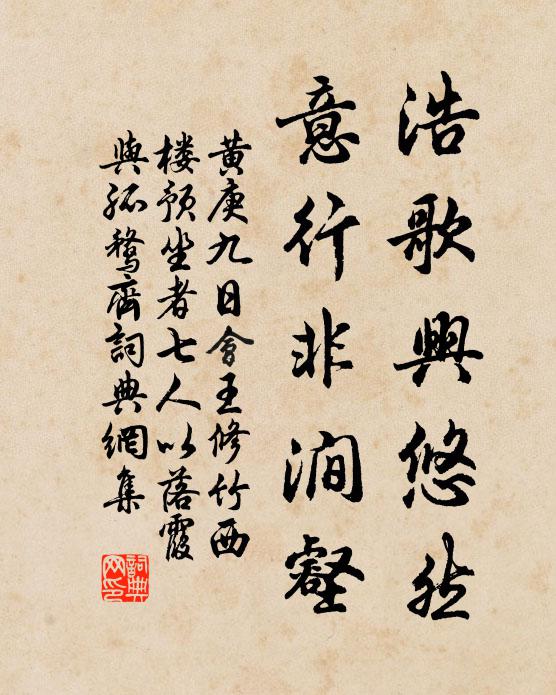 浩歌興悠然
意行非澗壑
黄庚九日會王修竹西
楼預坐者七人以落霞
與孤鶩齊詞典網集
詞典網印